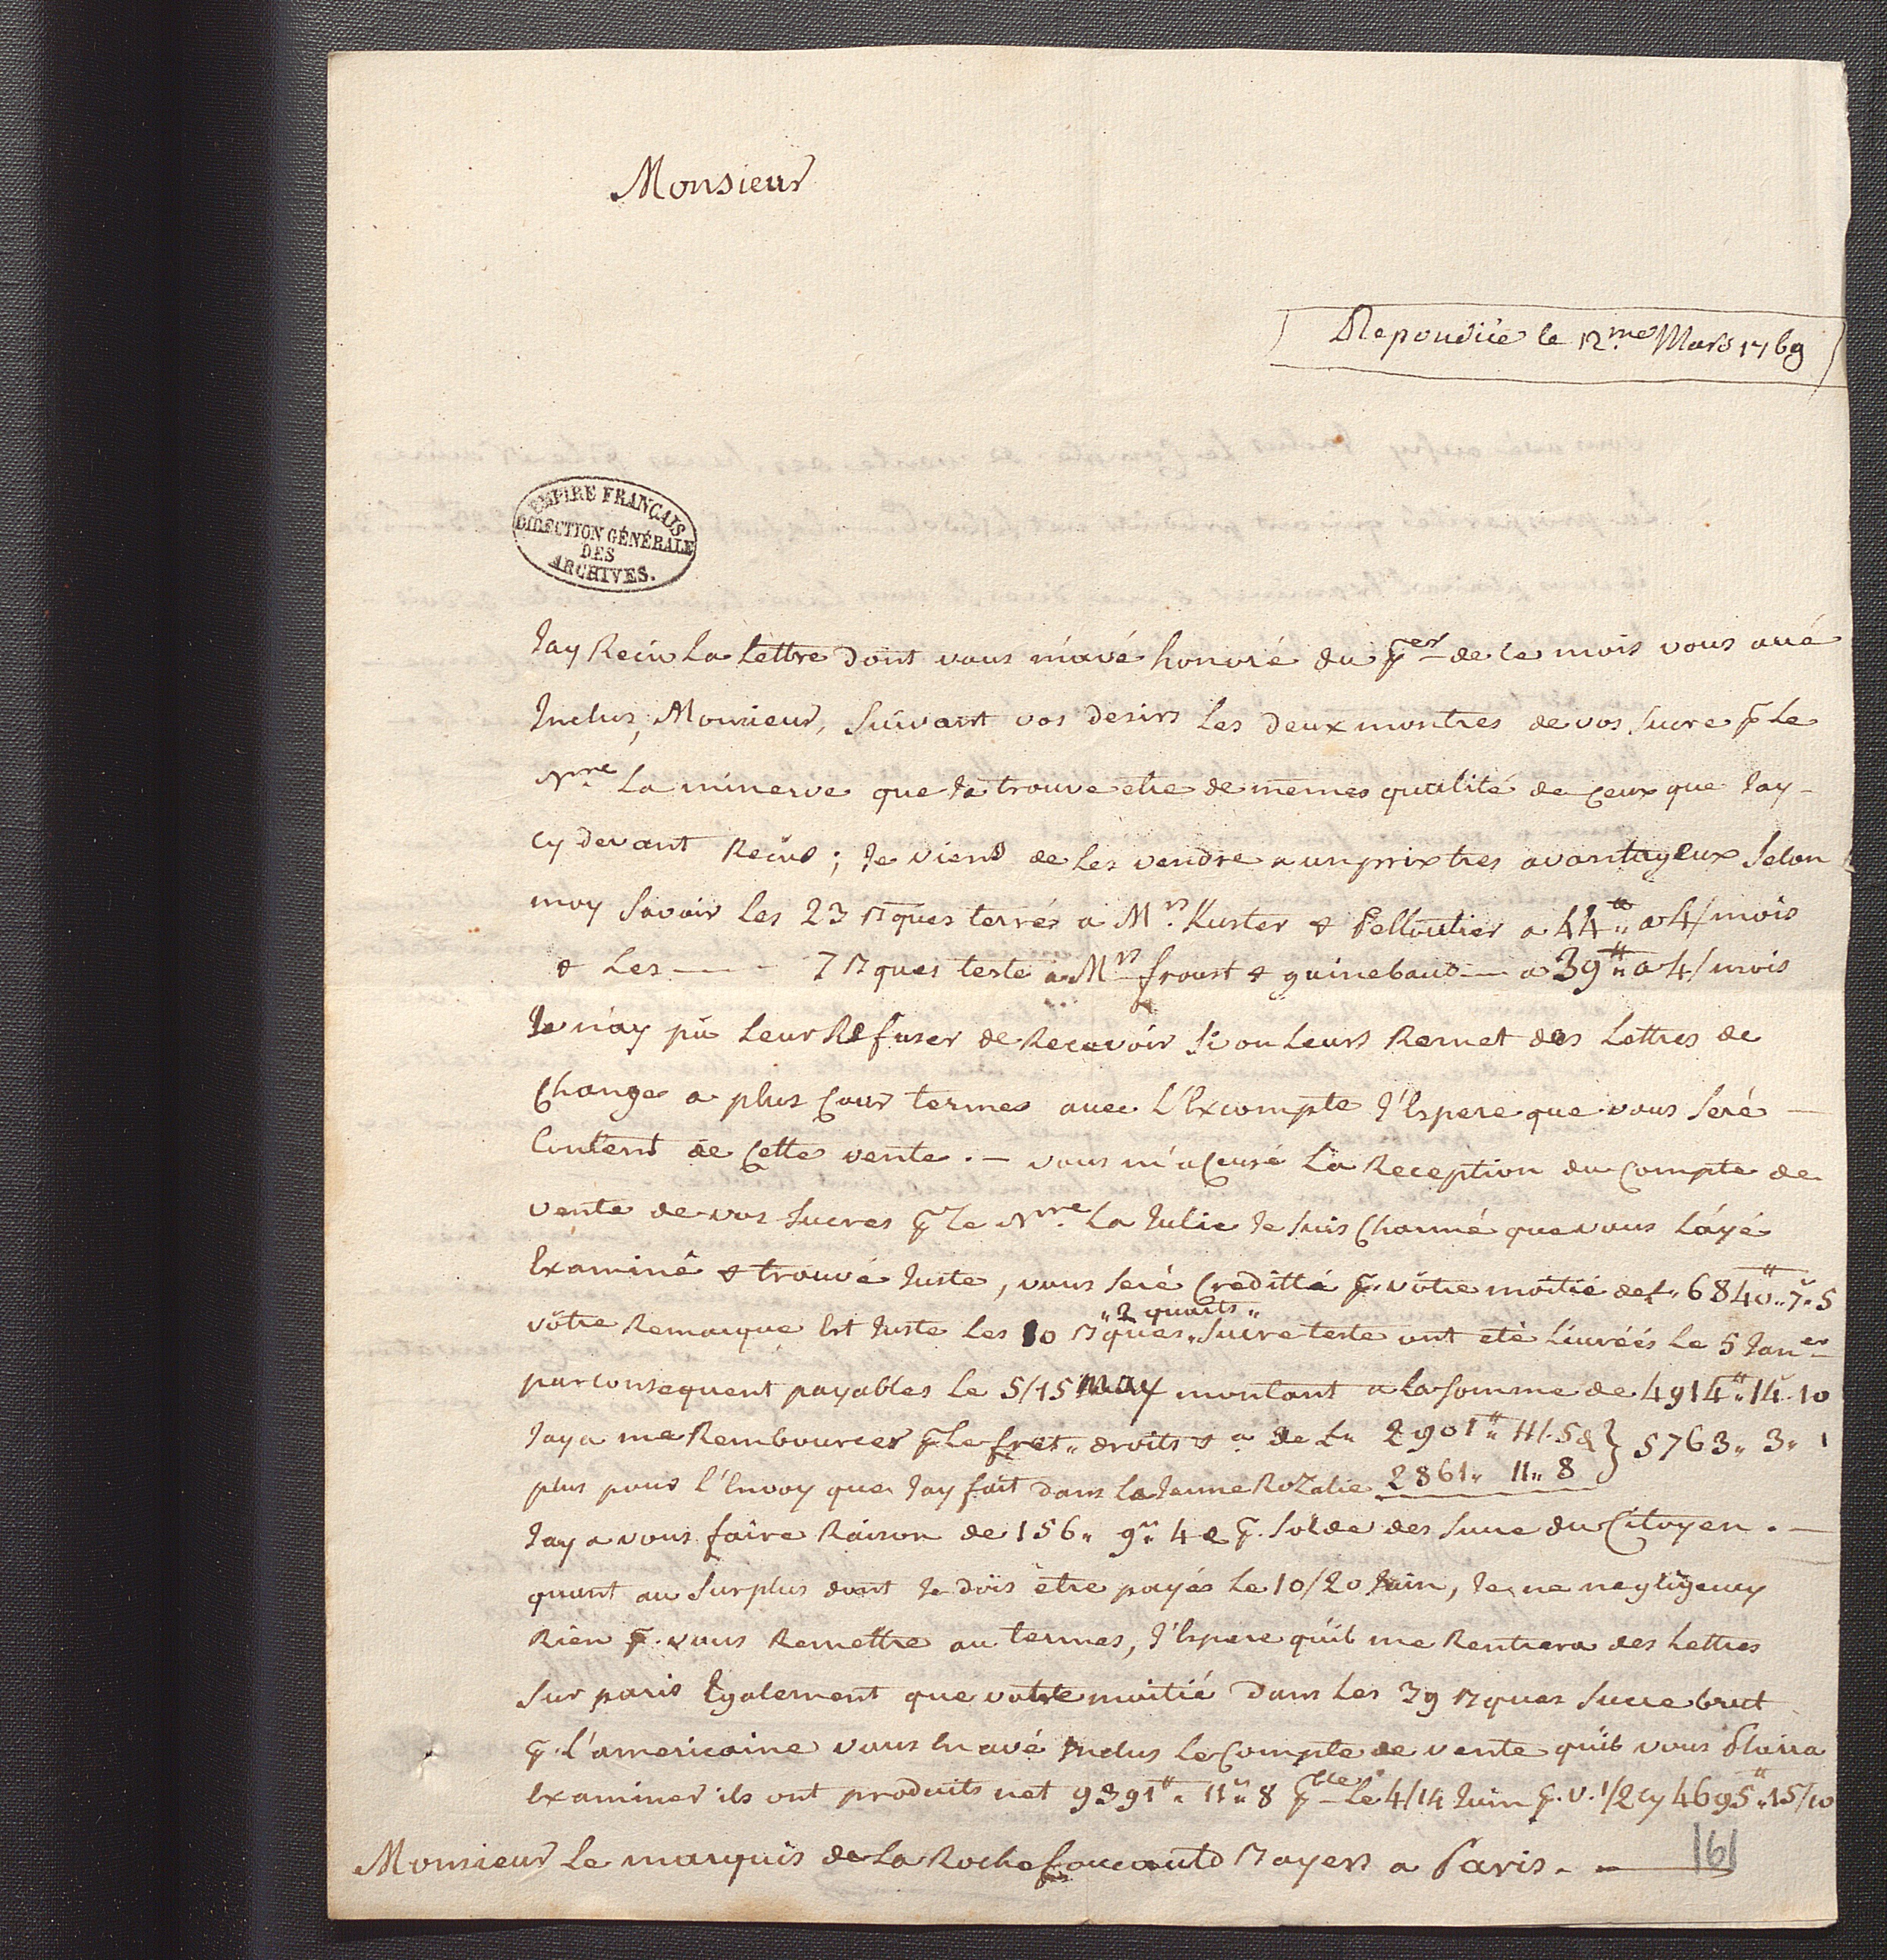 Monsieur
Repondüe le 12.me Mars 1769
EMPIRE FRANÇAIS
DIRECTION GÉNÉRALE
DES
ARCHIVES.
Jay Recu La Lettre dont vous m'avé honoré du per de ce mois vous avé
Inclus, Monsieur, Suivant vos desirs Les deux montres de vos Sucre p Le
N.re La minerve que Je trouve etre de memes qualité de ceux que Jay
cy devant Reçus ; Je viens de Les vendre a un prix tres avantageux Selon
moy Savoir Les 23 Bques terrés a M.rs Kuster & Pelloutier a 44tt a 4/mois
& Les — 7 Bques teste a M.rs froust & guinebaud — a 39tt a 4/mois
Je n'ay pu Leur Refuser de Recevoir Si on Leurs Remet des Lettres de
Change a plus Cour termes avec L'Excompte J'Espere que vous Seré —
Content de Cette vente . — vous m'acusé La Reception du Compte de
vente de vos Sucres p Le N.re La Julie Je Suis Charmé que vous L'ayé
Examiné & trouvé Juste, vous Seré Creditté p. vôtre moitié de L" 6840tt" 7" 5
"2 quarts"
vôtre Remarque Est Juste Les 10 Bques. Sucre teste ont eté Livréés Le 5 Janer
par consequent payables Le 5/15 may montant a La Somme de 4914tt" 14. 10
Jay a me Rembourcer p Le fret" droits & a de L" 2901tt" 11/. 5 & } 5763" 3" 1
plus pour l'Envoy que Jay fait dans La Jeune Rozalie 2861" 11" 8
Jay a vous faire Raison de 156" 9" 4 & p. Solde des Sucre du Citoyen . —
quant au Surplus dont Je dois etre payés Le 10/20 Juin, Je ne negligeray
Rien p. vous Remettre au termes, J'Espere qu'il me Rentrera des Lettres
Sur paris Egalement que votre moitié dans Les 39 Bques Sucre brut
p. L'americaine vous En avé Inclus Le Compte de vente qu'il vous Plaira
Examiner ils ont produits net 9391tt" 11" 8 p.ble Le 4/14 Juin p. v. 1/2 cy 4695tt" 15/10
Monsieur Le marquis de La Rochefoucauld Bayers a Paris. —
161